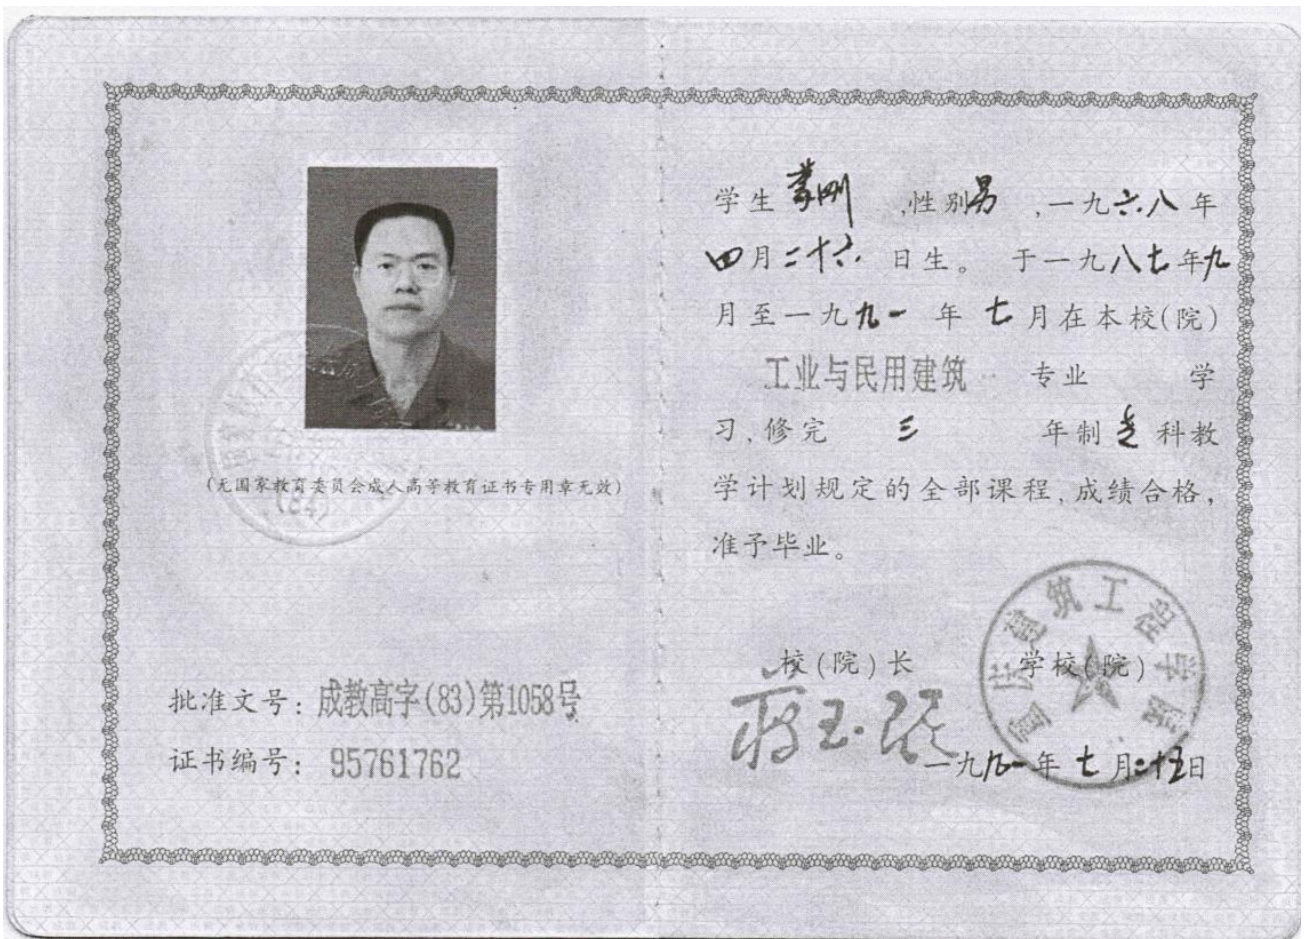 (无国家教育委员会成人高等教育证书专用章无效)
批准文号：成教高字(83)第1058号
证书编号：95761762
学生 刚 ,性别男 ,一九六八年
四月二十六 日生。 于一九八七年九
月至一九九一 年 七月在本校(院)
工业与民用建筑 专业 学
习,修完 三 年制 专 科教
学计划规定的全部课程,成绩合格,
准予毕业。
校(院)长 学校(院)
一九九一年 七 月二十五日
重庆建筑工程学院